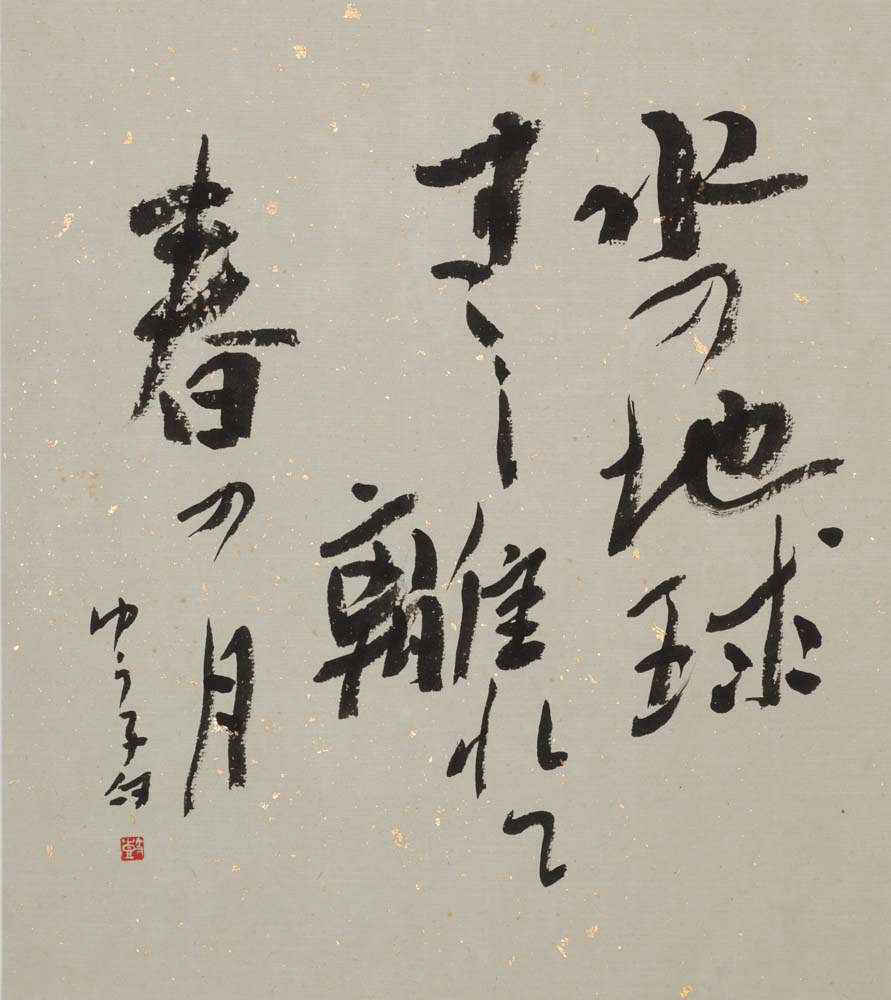 水の地球
すこし離れて
春の月
ゆう子